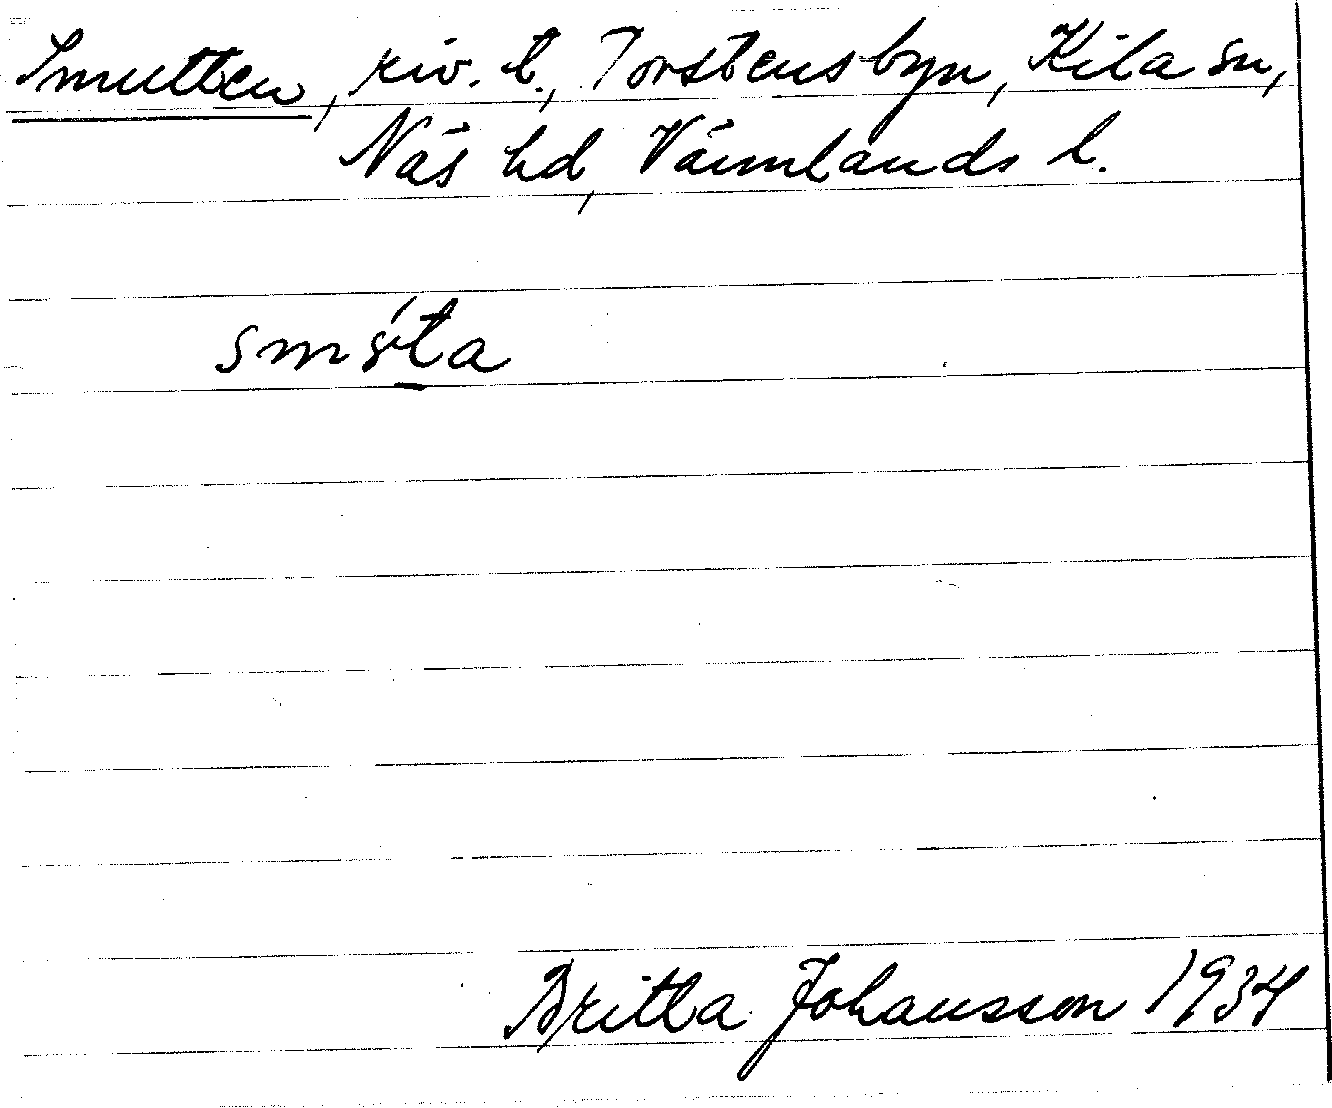 Smutten, riv. t., Torstensbyn, Kila sn,
Näs hd, Värmlands l.
Britta Johansson 1934